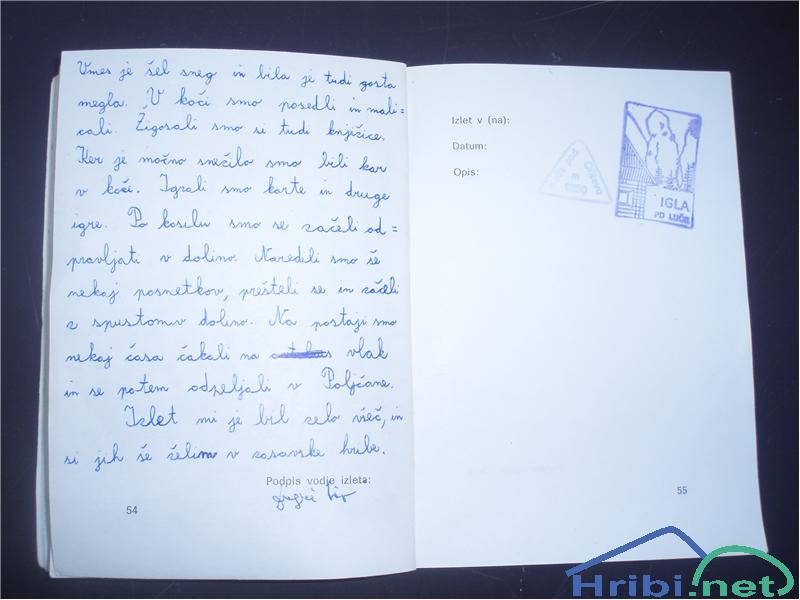 Vmes je šel sneg in bila je tudi gosta
megla. V koči smo posedli in mali=
cali. Žigosali smo si tudi knjižice.
Ker je močno snežilo smo bili kar
v koči. Igrali smo karte in druge
igre. Po kosilu smo se začeli od=
pravljati v dolino. Naredili smo še
nekaj posnetkov, prešteli se in začeli
z spustom v dolino. Na postaji smo
nekaj časa čakali na vlak
in se potem odpeljali v Poljčane.
Izlet mi je bil zelo všeč, in
si jih še želim v zasavske hribe.
Podpis vodje izleta:
54
Izlet v (na):
Datum:
Opis:
pod Olševo
m
IGLA
PD LUČE
55
Hribi.net